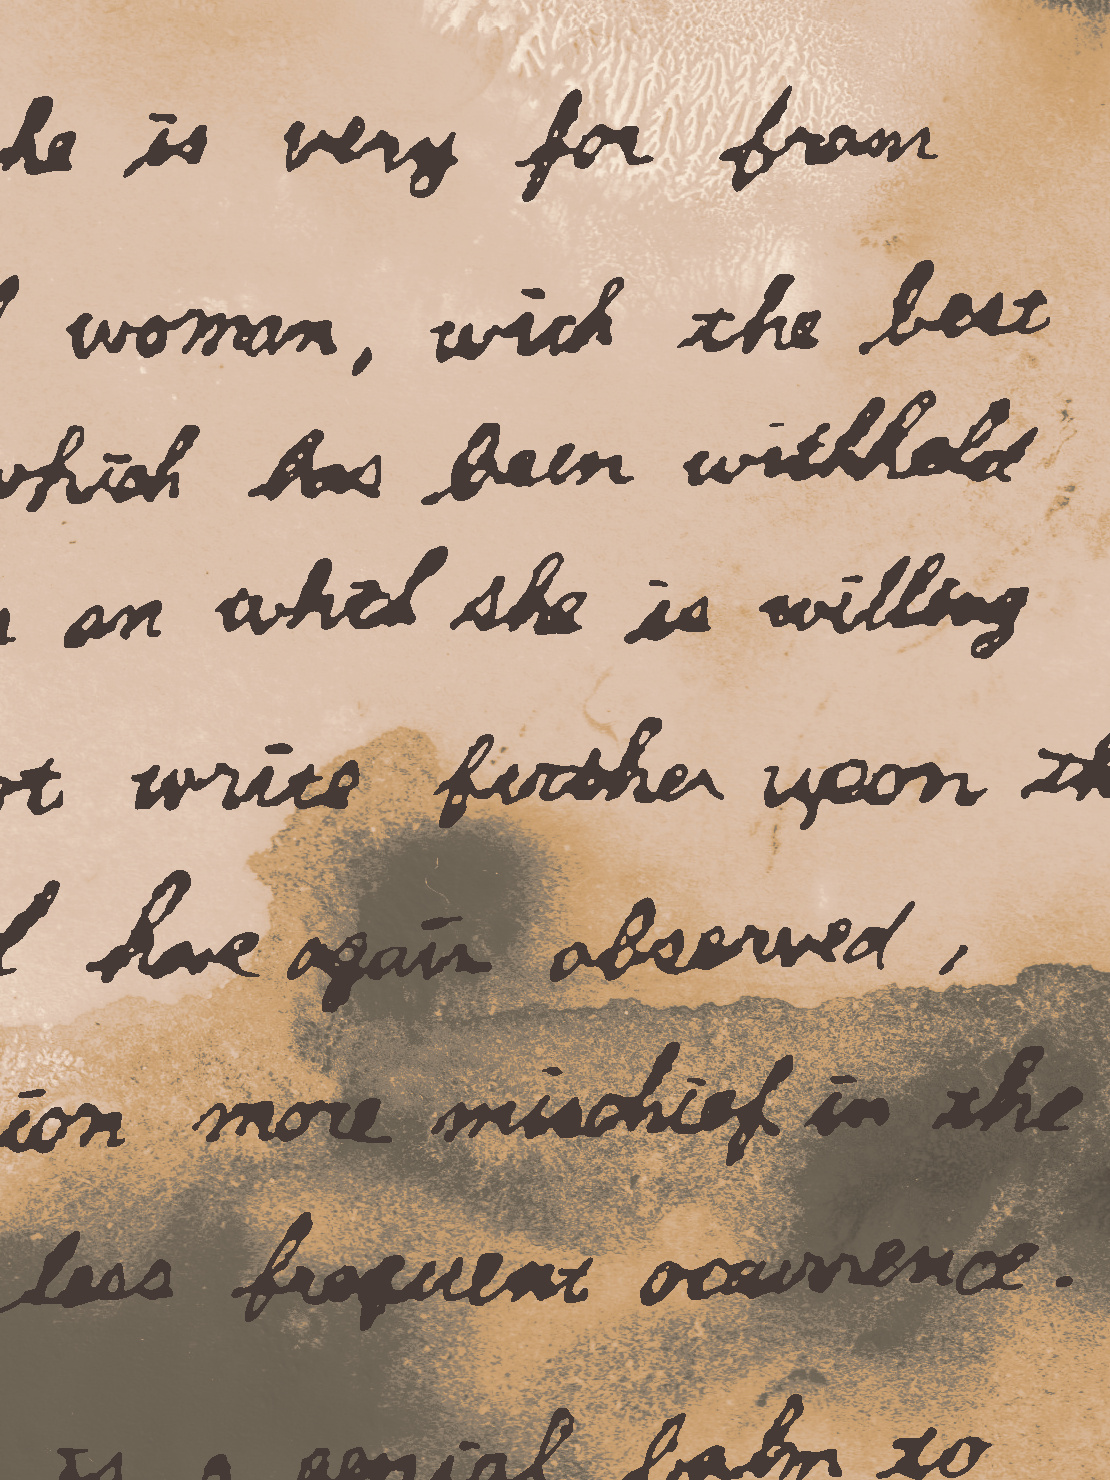 he is very far from
woman, with the best
which has been withheld
on which she is willing
ot write further upon th
d have again observed,
ion more mischief in the
less frequent occurrence.
is a genial balm to